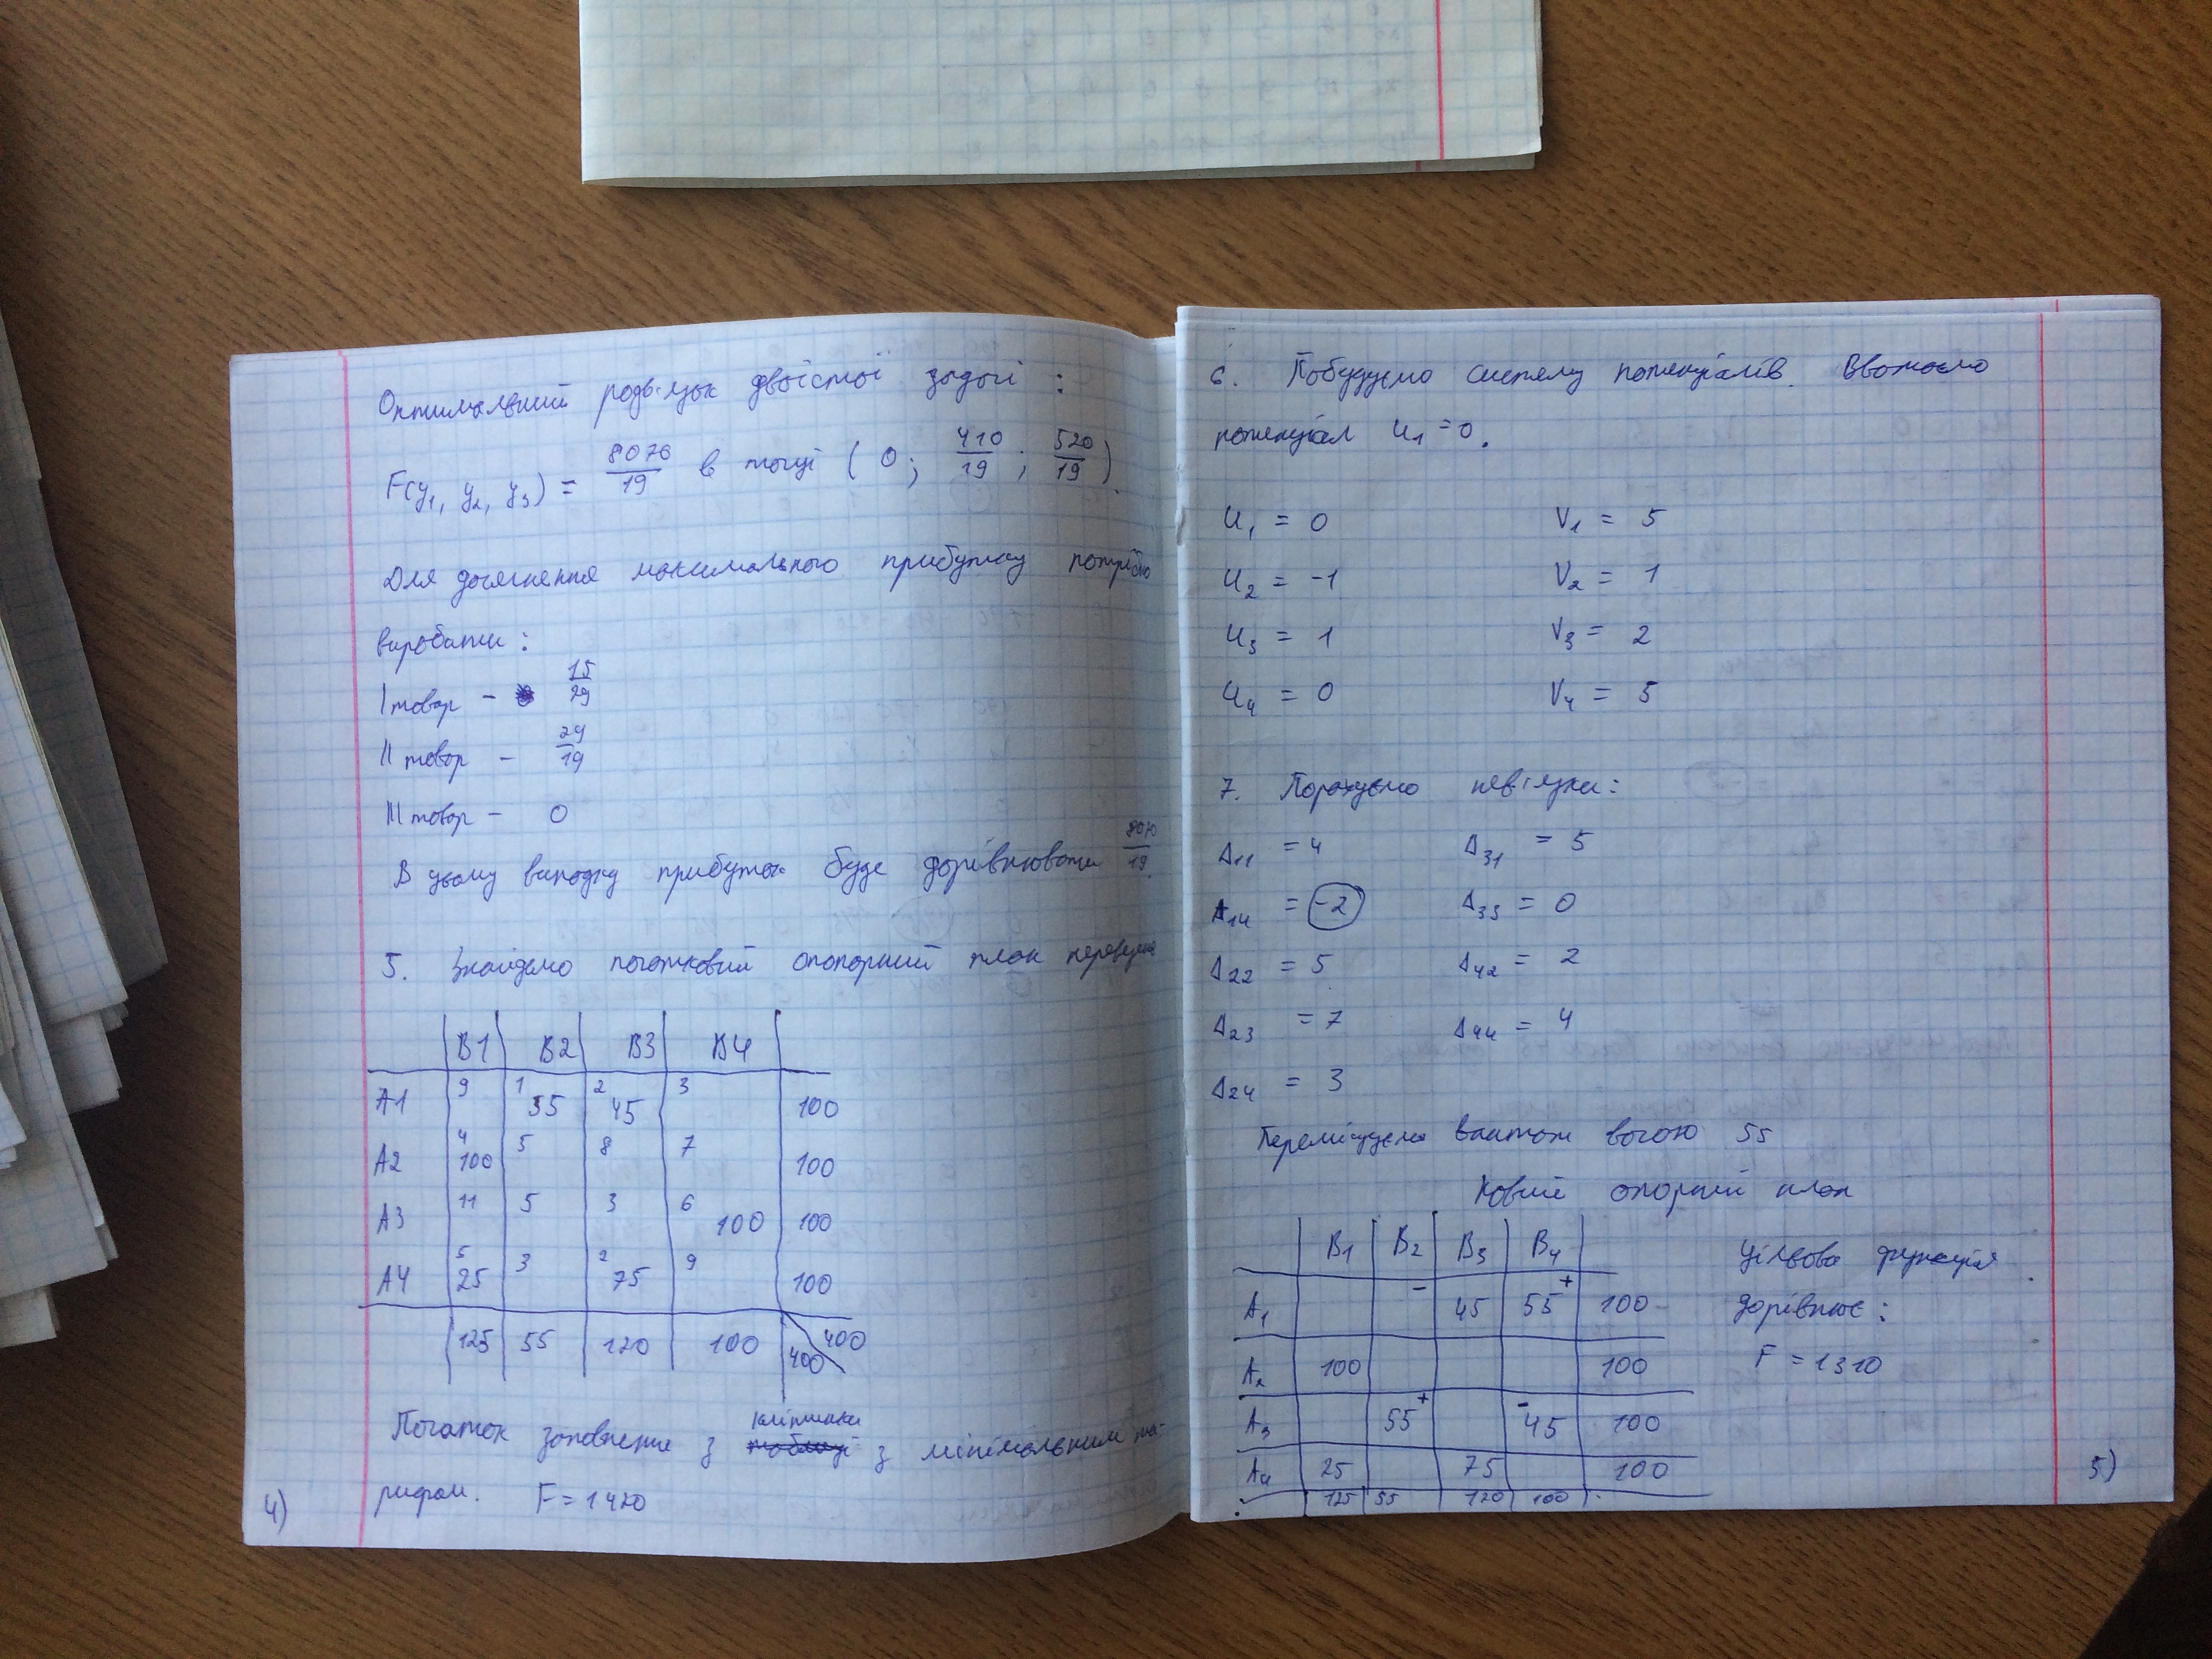 Оптимальний розв'язок двоїстої задачі :
F(y₁, y₂, y₃) = 8070/19 в точці ( 0 ; 410/19 ; 520/19 ).
Для досягнення максимального прибутку потрібно
виробити :
I товар – 15/29
II товар – 29/19
III товар – 0
В цьому випадку прибуток буде дорівнювати 8070/19.
5. Знайдемо початковий опорний план
B1 B2 B3 B4
A1 9 1 55 2 45 3 100
A2 4 100 5 8 7 100
A3 11 5 3 6 100 100
A4 5 25 3 2 75 9 100
125 55 120 100 400 400
Початок заповнення з клітинки з мінімальним та-
рифом. F = 1420
4)
6. Побудуємо систему потенціалів. Вважаємо
потенціал u₁ = 0.
u₁ = 0 v₁ = 5
u₂ = -1 v₂ = 1
u₃ = 1 v₃ = 2
u₄ = 0 v₄ = 5
7. Порахуємо нев'язки :
Δ₁₁ = 4 Δ₃₁ = 5
Δ₁₄ = -2 Δ₃₃ = 0
Δ₂₂ = 5 Δ₄₂ = 2
Δ₂₃ = 7 Δ₄₄ = 4
Δ₂₄ = 3
Переміщуємо вантаж вагою 55
Новий опорний план
B₁ B₂ B₃ B₄
A₁ - 45 55 + 100
A₂ 100 100
A₃ 55 + - 45 100
A₄ 25 75 100
125 55 120 100
Цільова функція
дорівнює :
F = 1310
5)